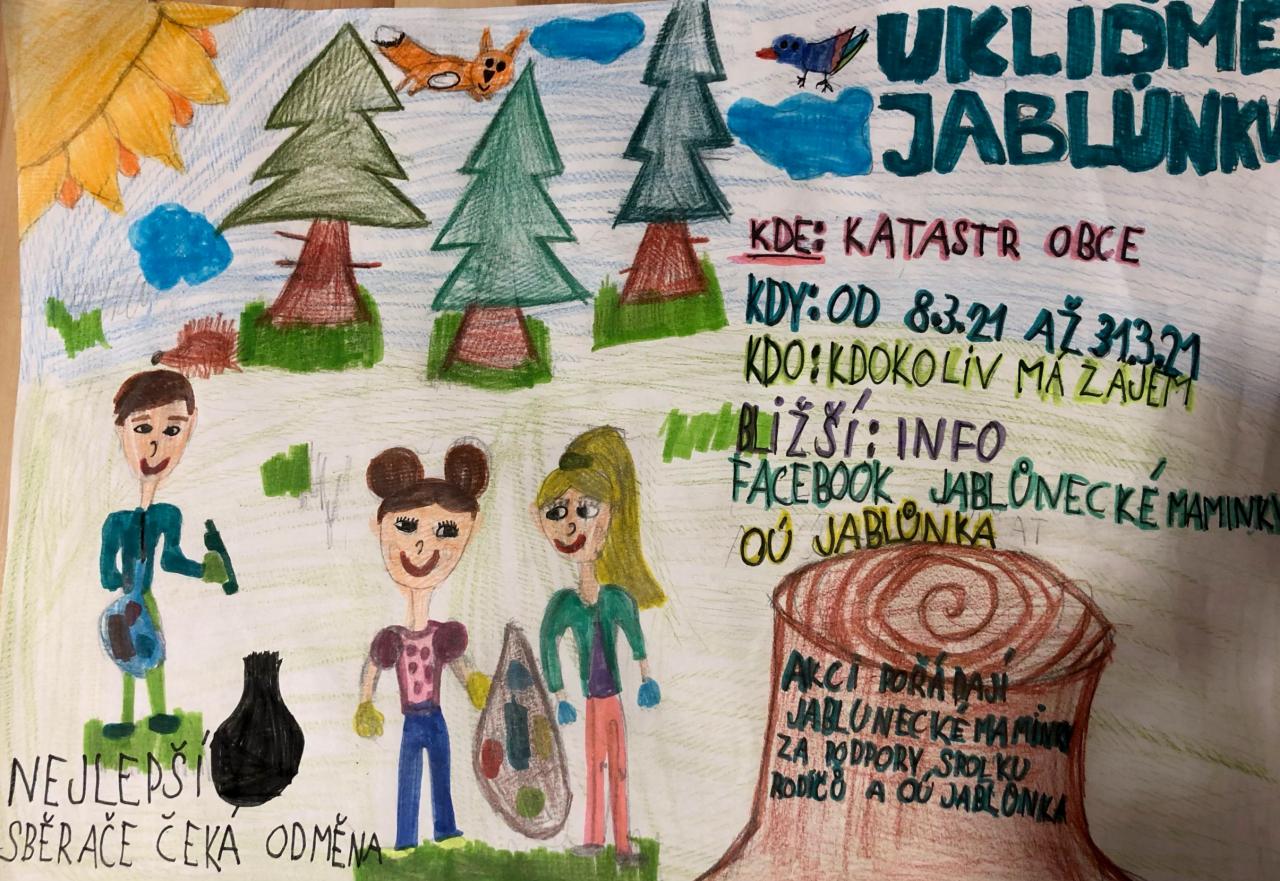 UKLIĎME
JABLŮNKU
KDE: KATASTR OBCE
KDY: OD 8.3.21 AŽ 31.3.21
KDO: KDOKOLIV MÁ ZÁJEM
BLIŽŠÍ: INFO
FACEBOOK JABLŮNECKÉ MAMINKY
OÚ JABLŮNKA
AKCI POŘÁDAJÍ
JABLUNECKÉ MAMINKY
ZA PODPORY SPOLKU
RODIČŮ A OÚ JABLŮNKA
NEJLEPŠÍ
SBĚRAČE ČEKÁ ODMĚNA